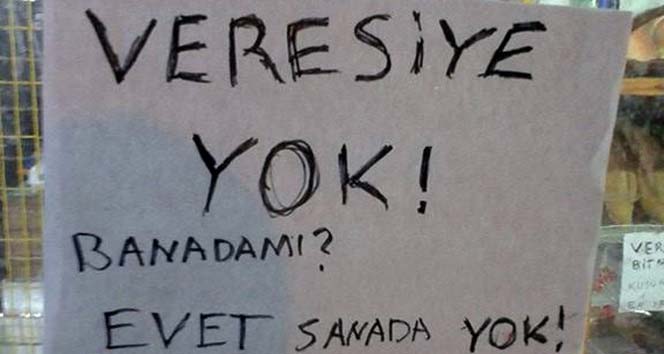 VERESİYE
YOK!
BANADAMI?
EVET SANADA YOK!
VER
BİTM